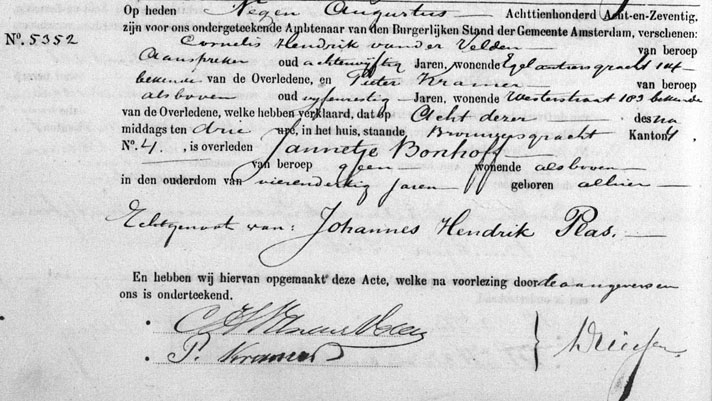 Op heden Negen Augustus Achttienhonderd Acht-en-Zeventig,
zijn voor ons ondergeteekende Ambtenaar van den Burgerlijken Stand der Gemeente Amsterdam, verschenen:
No. 5352
Cornelis Hendrik van der Velden van beroep
Aanspreker oud achtenvijftig Jaren, wonende Egelantiersgracht 114
bekende van de Overledene, en Pieter Kramer van beroep
alsboven oud vijfenzestig Jaren, wonende Westerstraat 103 bekende
van de Overledene, welke hebben verklaard, dat op Acht dezer des na
middags ten drie ure, in het huis, staande Brouwersgracht Kanton 4
No. 4, is overleden Jannetje Bonhoff
van beroep geen wonende alsboven
in den ouderdom van vierendertig jaren geboren alhier
Echtgenoot van: Johannes Hendrik Plas.
En hebben wij hiervan opgemaakt deze Acte, welke na voorlezing door de aangevers en
ons is onderteekend.
P. Kramer